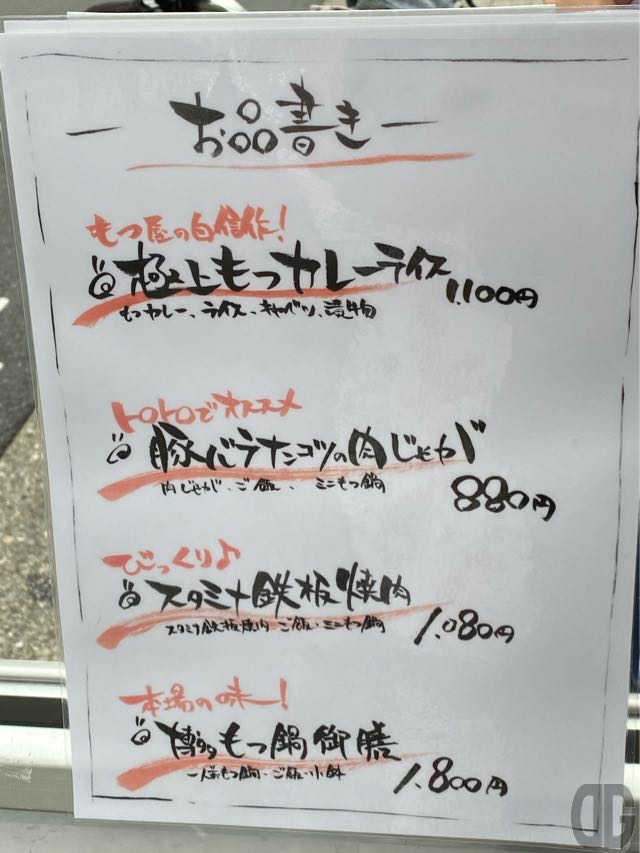 お品書き
もつ屋の自信作!
極上もつカレーライス
1,100円
もつカレー、ライス、キャベツ、漬物
トロトロでオススメ
豚バラナンコツの肉じゃが
肉じゃが、ご飯、ミニもつ鍋
880円
びっくり♪
スタミナ鉄板焼肉
スタミナ鉄板焼肉 ご飯・ミニもつ鍋
1,080円
本場の味ー!
博多もつ鍋御膳
一人前もつ鍋・ご飯・小鉢
1,800円
DG